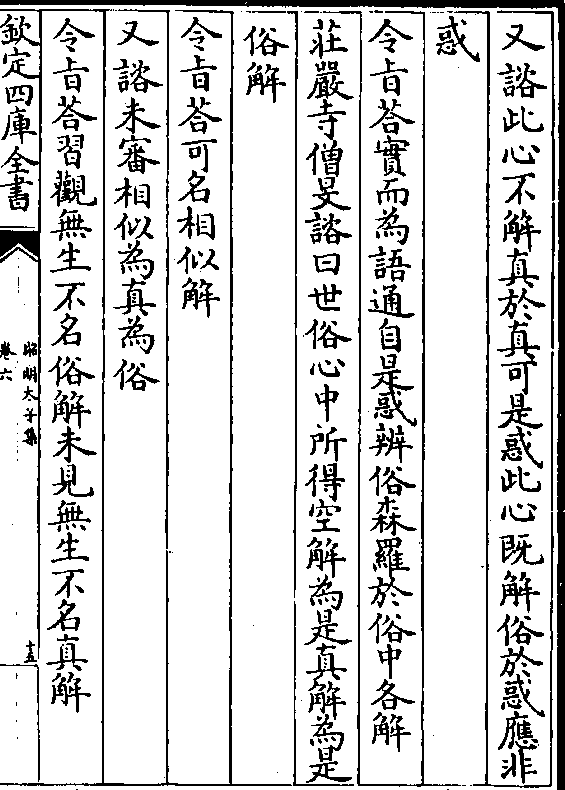 又諮此心不解真於真可是惑此心既解俗於惑應非
惑
令旨荅實而為語通自是惑辨俗森羅於俗中各解
莊嚴寺僧旻諮曰世俗心中所得空解為是真解為是
俗解
令旨荅可名相似解
又諮未審相似為真為俗
令旨荅習觀無生不名俗解未見無生不名真解
欽定四庫全書
昭明太子集
卷六
十五